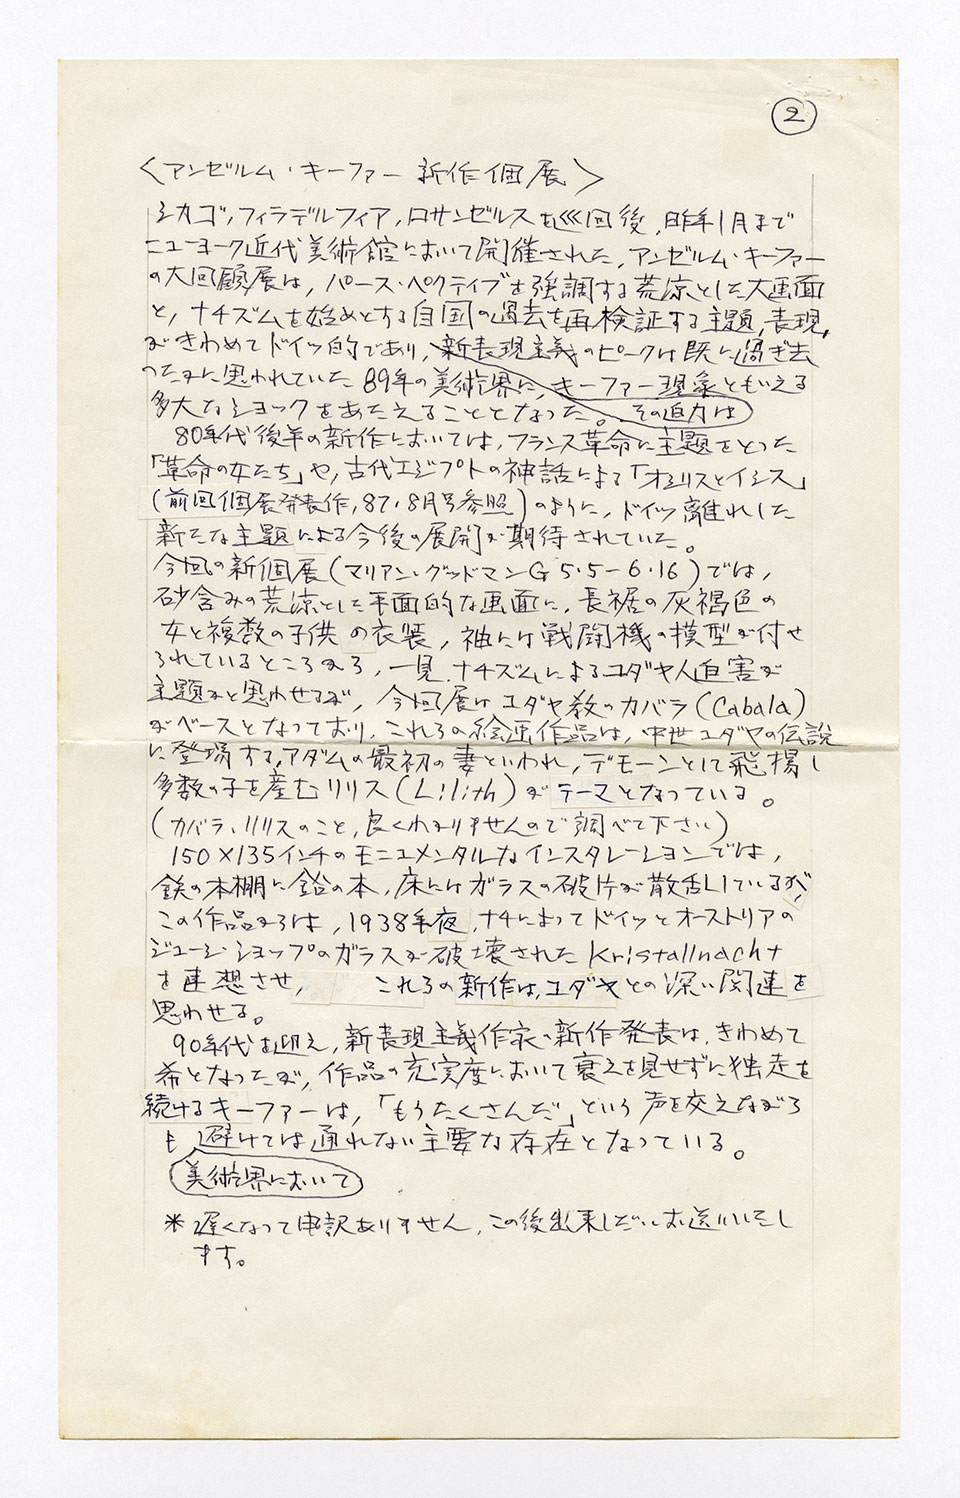 2
〈アンゼルム・キーファー 新作個展〉
シカゴ,フィラデルフィア,ロサンゼルスを巡回後,昨年1月まで
ニューヨーク近代美術館において開催された,アンゼルム・キーファー
の大回顧展は,パース・ペクティブを強調する荒涼とした大画面
と,ナチズムを始めとする自国の過去を再検証する主題,表現,
がきわめてドイツ的であり,新表現主義のピークは既に過ぎ去
ったかに思われていた89年の美術界に,キーファー現象ともいえる
多大なショックをあたえることとなった。その迫力は
80年代後半の新作においては,フランス革命に主題をとった
「革命の女たち」や,古代エジプトの神話による「オシリスとイシス」
(前回個展発表作,87・8月号参照)のように,ドイツ離れした
新たな主題による今後の展開が期待されていた。
今回の新個展(マリアン・グッドマンG 5・5-6・16)では,
砂含みの荒涼とした平面的な画面に,長裾の灰褐色の
女と複数の子供の衣装,袖には戦闘機の模型が付せ
られているところから,一見,ナチズムによるユダヤ人迫害が
主題かと思わせるが,今回展はユダヤ教のカバラ(Cabala)
がベースとなっており,これらの絵画作品は,中世ユダヤの伝説
に登場する,アダムの最初の妻といわれ,デモーンとして飛揚し
多数の子を産むリリス(Lilith)がテーマとなっている。
(カバラ,リリスのこと,良くわかりませんので調べて下さい)
150×135インチのモニュメンタルなインスタレーションでは,
鉄の本棚に鉛の本,床にはガラスの破片が散乱しているが,
この作品からは,1938年夜,ナチによってドイツとオーストリアの
ジューシ・ショップのガラスが破壊されたKristallnacht
を連想させ,これらの新作は,ユダヤとの深い関連を
思わせる。
90年代を迎え,新表現主義作家の新作発表は,きわめて
希となったが,作品の充実度において衰えを見せずに独走を
続けるキーファーは,「もうたくさんだ」という声を交えながら
も 避けては通れない主要な存在となっている。
美術界において
*遅くなって申訳ありません,この後出来しだいお送りいたし
ます。